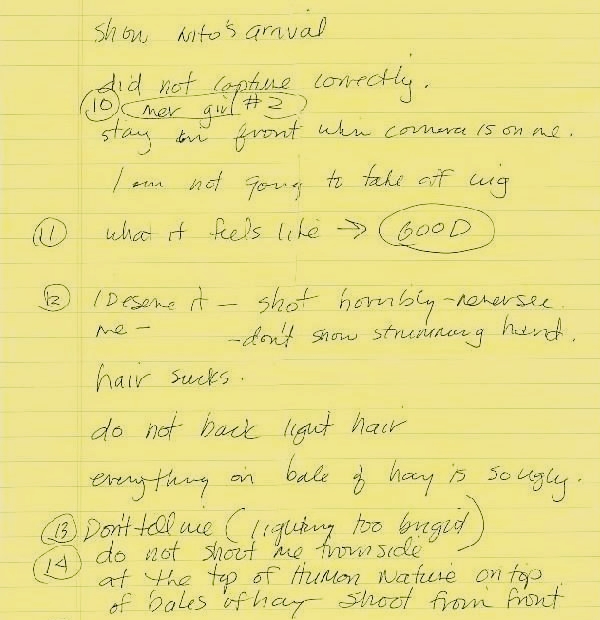 Show Nito's arrival
did not capture correctly.
(10) (Mer girl #2)
stay in front when camera is on me.
I am not going to take off wig
(11) what it feels like → (GOOD)
(12) I Deserve it — shot horribly - never see
me — - don't show strumming hand.
hair sucks.
do not back light hair
everything on bale of hay is so ugly.
(13) Don't tell me (lighting too bright)
(14) do not shoot me from side
at the top of Human Nature on top
of bales of hay shoot from front